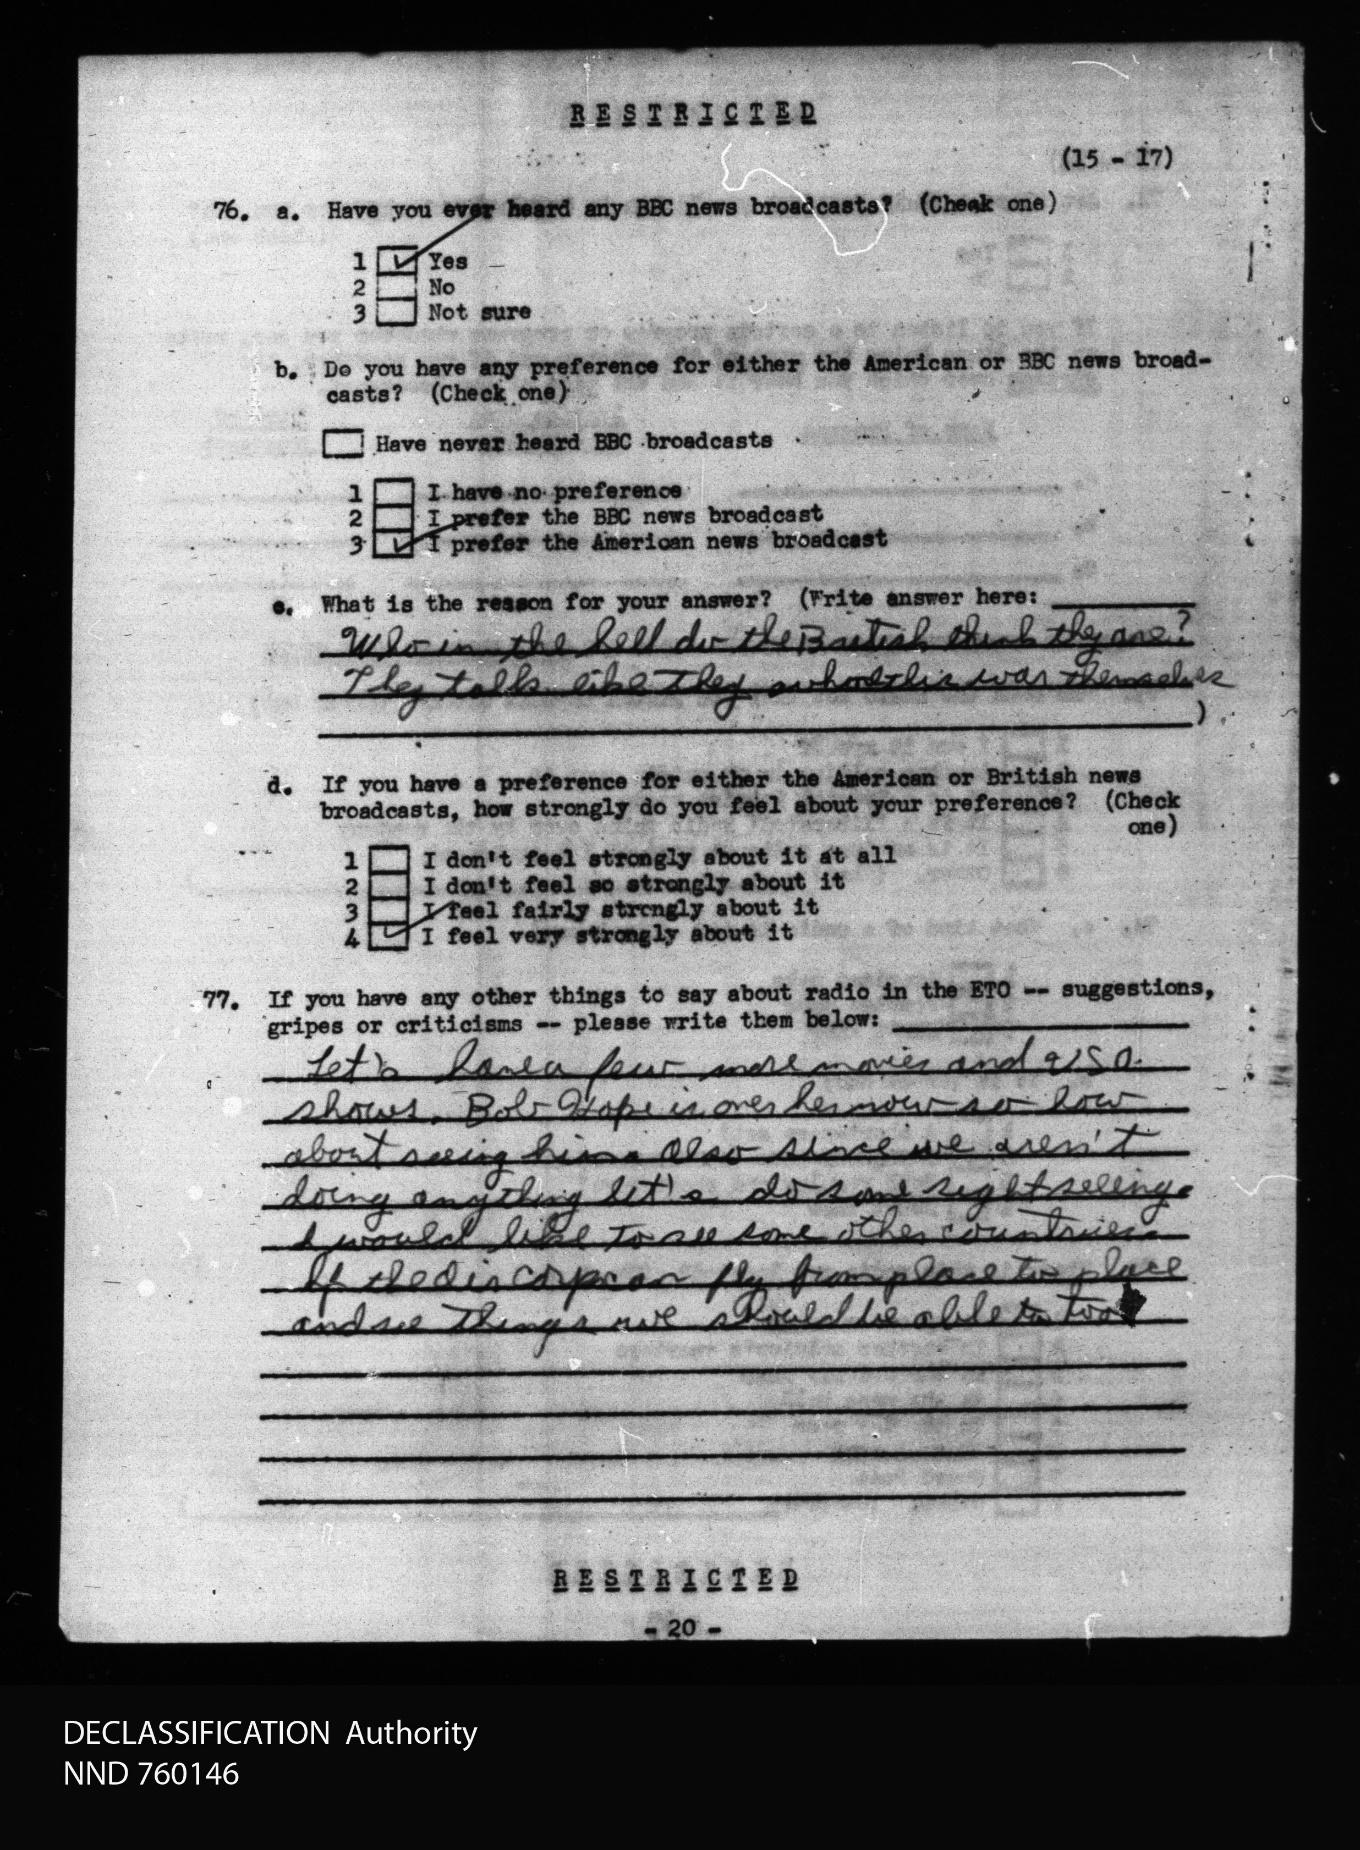 RESTRICTED
(15 - 17)
76. a. Have you ever heard any BBC news broadcasts? (Check one)
1 Yes
2 No
3 Not sure
b. Do you have any preference for either the American or BBC news broad-
casts? (Check one)
Have never heard BBC broadcasts
1 I have no preference
2 I prefer the BBC news broadcast
3 I prefer the American news broadcast
c. What is the reason for your answer? (Write answer here:
Who in the hell do the British think they are?
They talk like they won this war themselves
)
d. If you have a preference for either the American or British news
broadcasts, how strongly do you feel about your preference? (Check
one)
1 I don't feel strongly about it at all
2 I don't feel so strongly about it
3 I feel fairly strongly about it
4 I feel very strongly about it
77. If you have any other things to say about radio in the ETO -- suggestions,
gripes or criticisms -- please write them below:
Let's have a few more movies and USO
shows. Bob Hope is over her now so how
about seeing him. Also since we aren't
doing anything let's do some sight seeing.
I would like to see some other countries.
If the air corp can fly from place to place
and see things we should be able to too
RESTRICTED
- 20 -
DECLASSIFICATION Authority
NND 760146